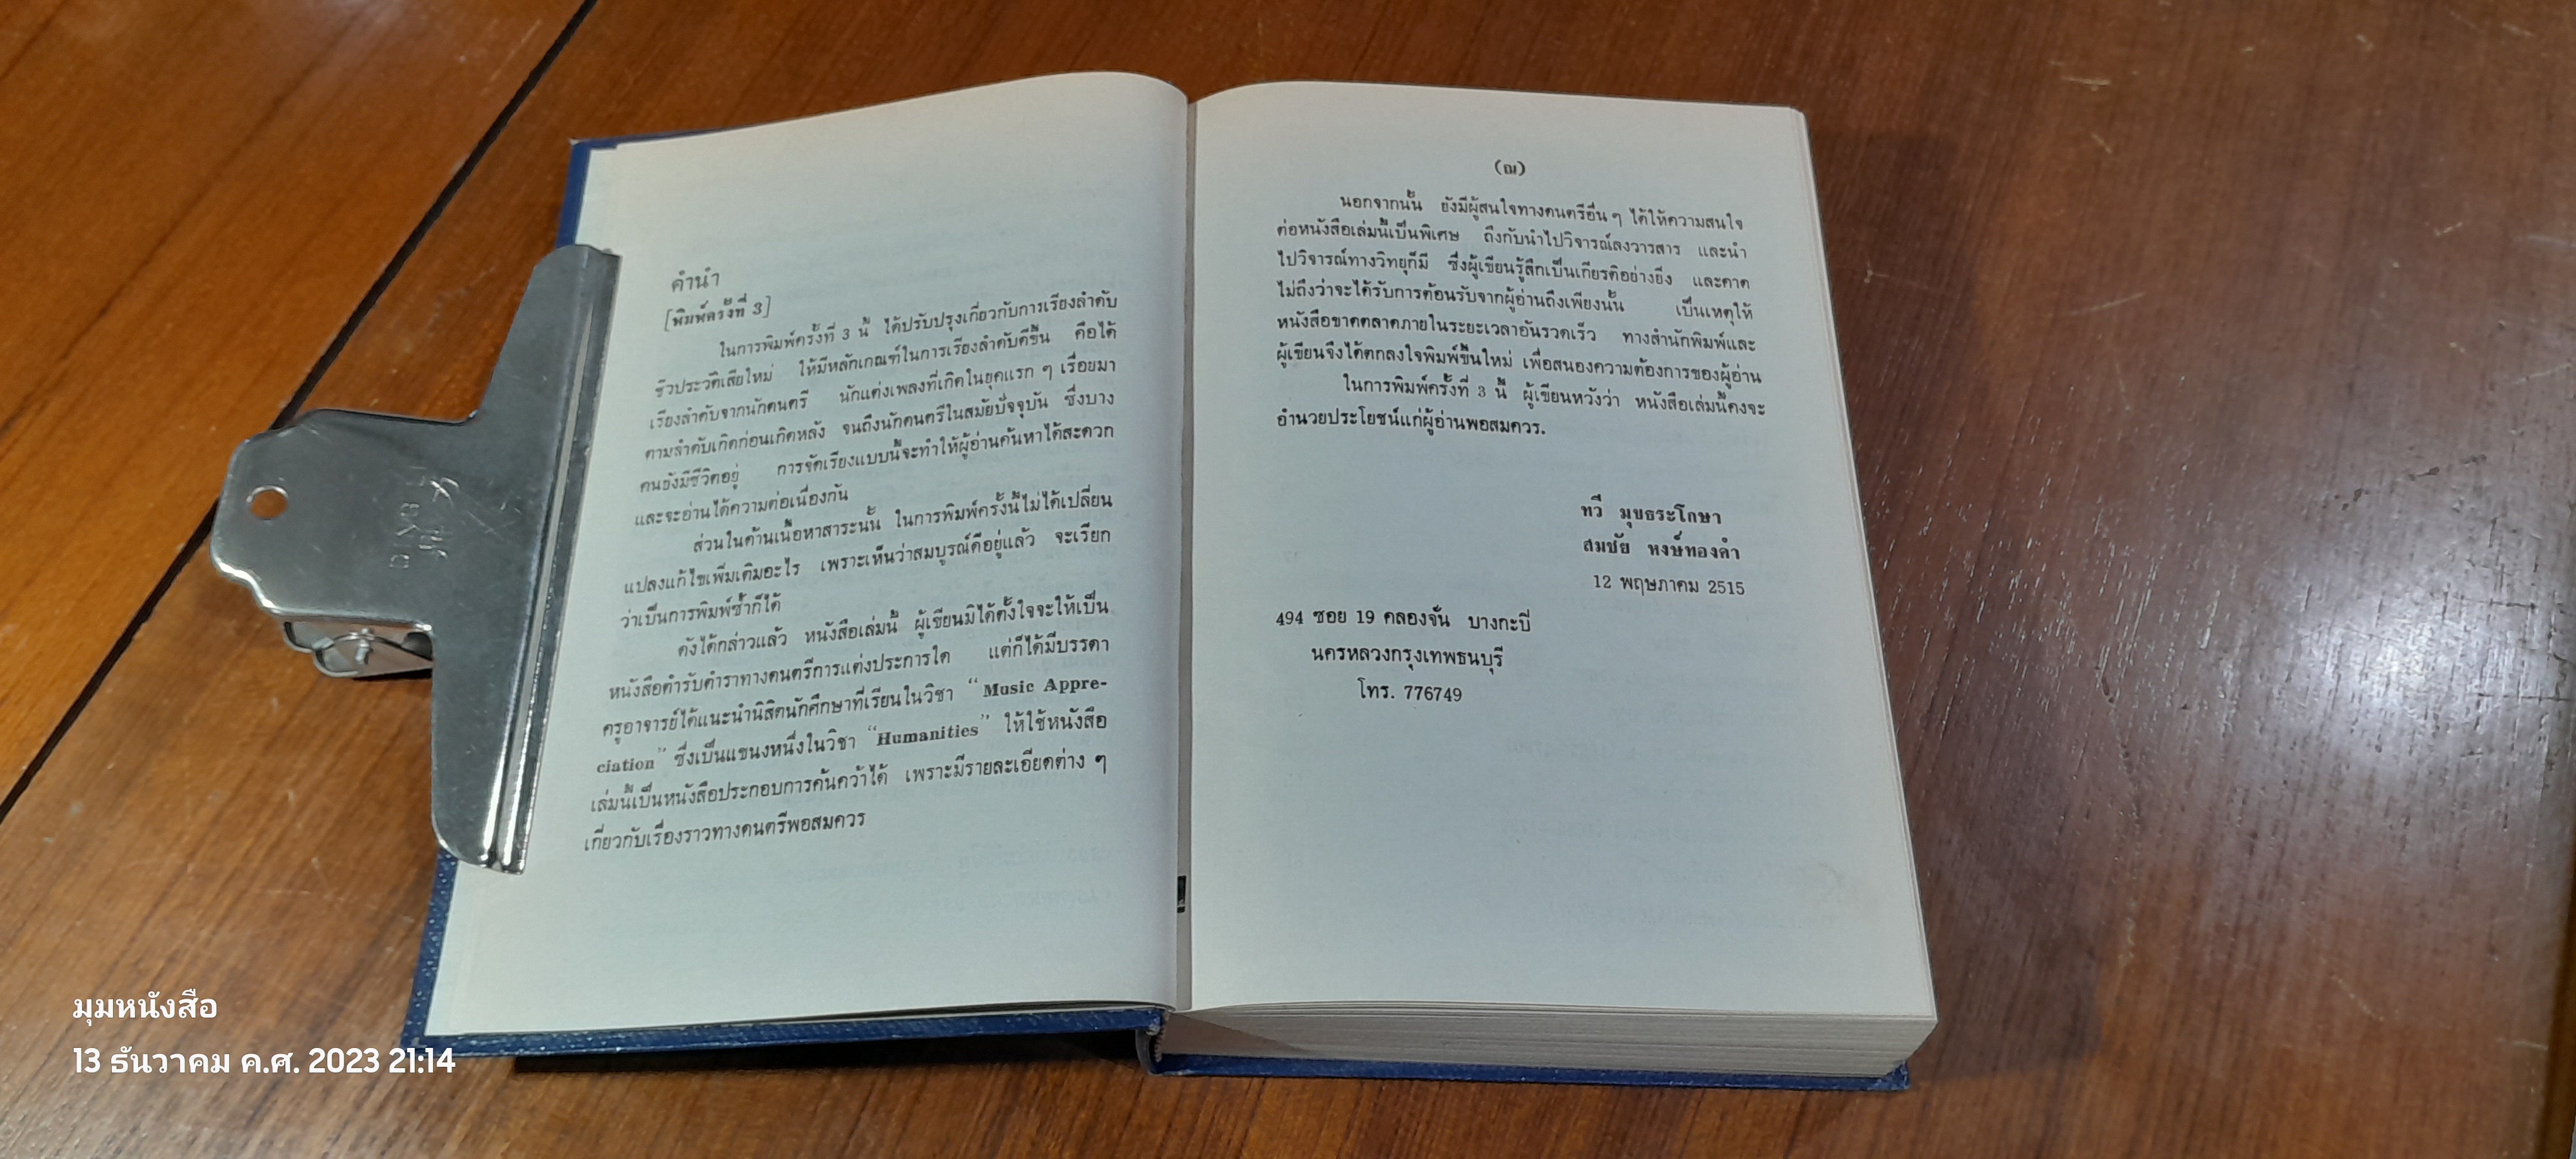 คำนำ
[พิมพ์ครั้งที่ 3]
ในการพิมพ์ครั้งที่ 3 นี้ ได้ปรับปรุงเกี่ยวกับการเรียงลำดับ
ชีวประวัติเสียใหม่ ให้มีหลักเกณฑ์ในการเรียงลำดับดีขึ้น คือได้
เรียงลำดับจากนักดนตรี นักแต่งเพลงที่เกิดในยุคแรก ๆ เรื่อยมา
ตามลำดับเกิดก่อนเกิดหลัง จนถึงนักดนตรีในสมัยปัจจุบัน ซึ่งบาง
คนยังมีชีวิตอยู่ การจัดเรียงแบบนี้จะทำให้ผู้อ่านค้นหาได้สะดวก
และจะอ่านได้ความต่อเนื่องกัน
ส่วนในด้านเนื้อหาสาระนั้น ในการพิมพ์ครั้งนี้ไม่ได้เปลี่ยน
แปลงแก้ไขเพิ่มเติมอะไร เพราะเห็นว่าสมบูรณ์ดีอยู่แล้ว จะเรียก
ว่าเป็นการพิมพ์ซ้ำก็ได้
ดังได้กล่าวแล้ว หนังสือเล่มนี้ ผู้เขียนมิได้ตั้งใจจะให้เป็น
หนังสือตำรับตำราทางดนตรีการแต่งประการใด แต่ก็ได้มีบรรดา
ครูอาจารย์ได้แนะนำนิสิตนักศึกษาที่เรียนในวิชา "Music Appre-
ciation" ซึ่งเป็นแขนงหนึ่งในวิชา "Humanities" ให้ใช้หนังสือ
เล่มนี้เป็นหนังสือประกอบการค้นคว้าได้ เพราะมีรายละเอียดต่าง ๆ
เกี่ยวกับเรื่องราวทางดนตรีพอสมควร
(ฌ)
นอกจากนั้น ยังมีผู้สนใจทางดนตรีอื่น ๆ ได้ให้ความสนใจ
ต่อหนังสือเล่มนี้เป็นพิเศษ ถึงกับนำไปวิจารณ์ลงวารสาร และนำ
ไปวิจารณ์ทางวิทยุก็มี ซึ่งผู้เขียนรู้สึกเป็นเกียรติอย่างยิ่ง และคาด
ไม่ถึงว่าจะได้รับการต้อนรับจากผู้อ่านถึงเพียงนั้น เป็นเหตุให้
หนังสือขาดตลาดภายในระยะเวลาอันรวดเร็ว ทางสำนักพิมพ์และ
ผู้เขียนจึงได้ตกลงใจพิมพ์ขึ้นใหม่ เพื่อสนองความต้องการของผู้อ่าน
ในการพิมพ์ครั้งที่ 3 นี้ ผู้เขียนหวังว่า หนังสือเล่มนี้คงจะ
อำนวยประโยชน์แก่ผู้อ่านพอสมควร.
ทวี มุขธระโกษา
สมชัย หงษ์ทองคำ
12 พฤษภาคม 2515
494 ซอย 19 คลองจั่น บางกะปี่
นครหลวงกรุงเทพธนบุรี
โทร. 776749
มุมหนังสือ
13 ธันวาคม ค.ศ. 2023 21:14